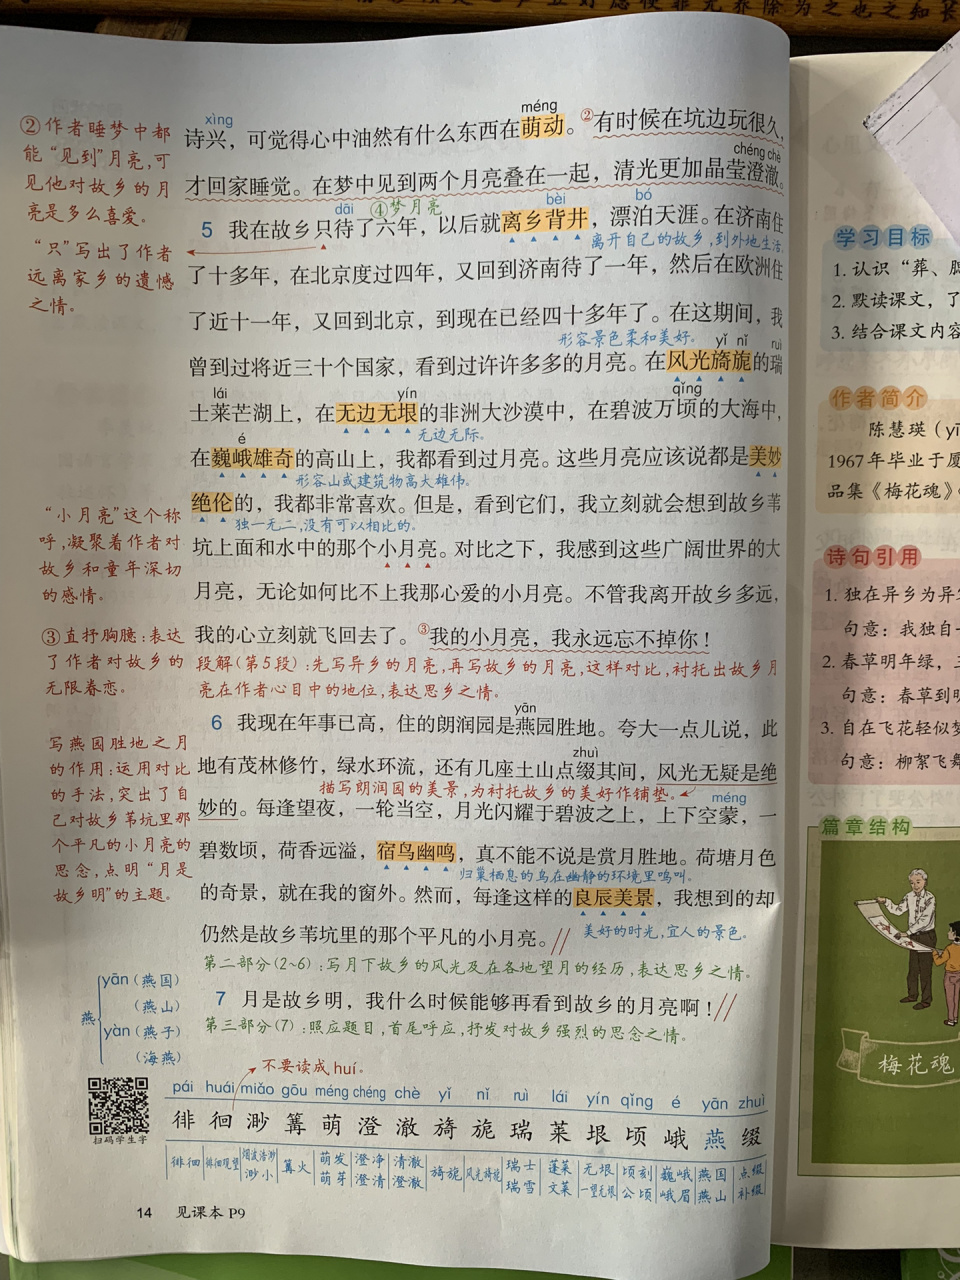 xìng
méng
诗兴，可觉得心中油然有什么东西在萌动。②有时候在坑边玩很久，
chéng chè
才回家睡觉。在梦中见到两个月亮叠在一起，清光更加晶莹澄澈。
④梦月亮
dāi
bèi
bó
5 我在故乡只待了六年，以后就离乡背井，漂泊天涯。在济南住
离开自己的故乡，到外地生活。
了十多年，在北京度过四年，又回到济南待了一年，然后在欧洲住
了近十一年，又回到北京，到现在已经四十多年了。在这期间，我
形容景色柔和美好。
yǐ nǐ
ruì
曾到过将近三十个国家，看到过许许多多的月亮。在风光旖旎的瑞
lái
yín
qǐng
士莱芒湖上，在无边无垠的非洲大沙漠中，在碧波万顷的大海中，
无边无际。
é
在巍峨雄奇的高山上，我都看到过月亮。这些月亮应该说都是美妙
形容山或建筑物高大雄伟。
绝伦的，我都非常喜欢。但是，看到它们，我立刻就会想到故乡苇
独一无二，没有可以相比的。
坑上面和水中的那个小月亮。对比之下，我感到这些广阔世界的大
月亮，无论如何比不上我那心爱的小月亮。不管我离开故乡多远，
我的心立刻就飞回去了。③我的小月亮，我永远忘不掉你！
段解（第5段）：先写异乡的月亮，再写故乡的月亮，这样对比，衬托出故乡月
亮在作者心目中的地位，表达思乡之情。
yān
6 我现在年事已高，住的朗润园是燕园胜地。夸大一点儿说，此
zhuì
地有茂林修竹，绿水环流，还有几座土山点缀其间，风光无疑是绝
描写朗润园的美景，为衬托故乡的美好作铺垫。
méng
妙的。每逢望夜，一轮当空，月光闪耀于碧波之上，上下空蒙，一
碧数顷，荷香远溢，宿鸟幽鸣，真不能不说是赏月胜地。荷塘月色
归巢栖息的鸟在幽静的环境里鸣叫。
的奇景，就在我的窗外。然而，每逢这样的良辰美景，我想到的却
美好的时光，宜人的景色。
仍然是故乡苇坑里的那个平凡的小月亮。
第二部分（2~6）：写月下故乡的风光及在各地望月的经历，表达思乡之情。
7 月是故乡明，我什么时候能够再看到故乡的月亮啊！
第三部分（7）：照应题目，首尾呼应，抒发对故乡强烈的思念之情。
②作者睡梦中都
能“见到”月亮，可
见他对故乡的月
亮是多么喜爱。
“只”写出了作者
远离家乡的遗憾
之情。
“小月亮”这个称
呼，凝聚着作者对
故乡和童年深切
的感情。
③直抒胸臆：表达
了作者对故乡的
无限眷恋。
写燕园胜地之月
的作用：运用对比
的手法，突出了自
己对故乡苇坑里那
个平凡的小月亮的
思念，点明“月是
故乡明”的主题。
燕
yān（燕国）
（燕山）
yàn（燕子）
（海燕）
扫码学生字
不要读成 huí。
pái huái miǎo gōu méng chéng chè yǐ nǐ ruì lái yín qǐng é yān zhuì
徘 徊 渺 篝 萌 澄 澈 旖 旎 瑞 莱 垠 顷 峨 燕 缀
徘徊 徘徊观望 烟波浩渺 篝火 萌发 澄净 清澈 旖旎 风光旖旎 瑞士 蓬莱 无垠 顷刻 巍峨 燕国 点缀
渺小 萌芽 澄清 澄澈 瑞雪 文莱 一望无垠 公顷 峨眉 燕山 补缀
14 见课本 P9
学习目标
1. 认识“葬、腮
2. 默读课文，了
3. 结合课文内容
作者简介
陈慧瑛（yī
1967年毕业于厦
品集《梅花魂》
诗句引用
1. 独在异乡为异客
句意：我独自一
2. 春草明年绿，王
句意：春草到明
3. 自在飞花轻似梦
句意：柳絮飞舞
篇章结构
梅花魂